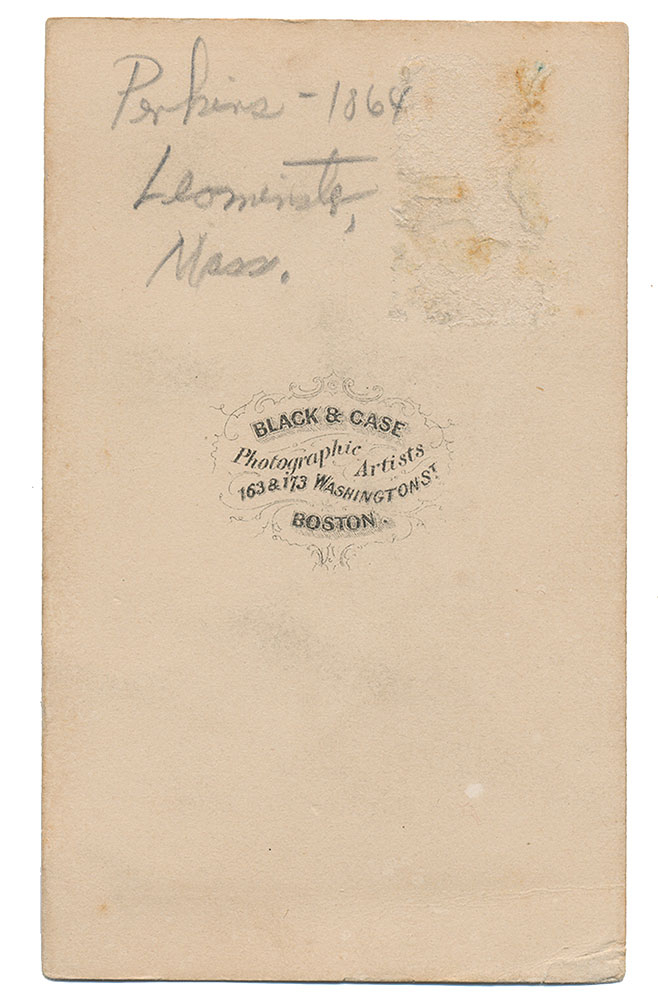 Perkins - 1864
Leominster,
Mass.
BLACK & CASE
Photographic Artists
163 & 173 WASHINGTON ST
BOSTON.